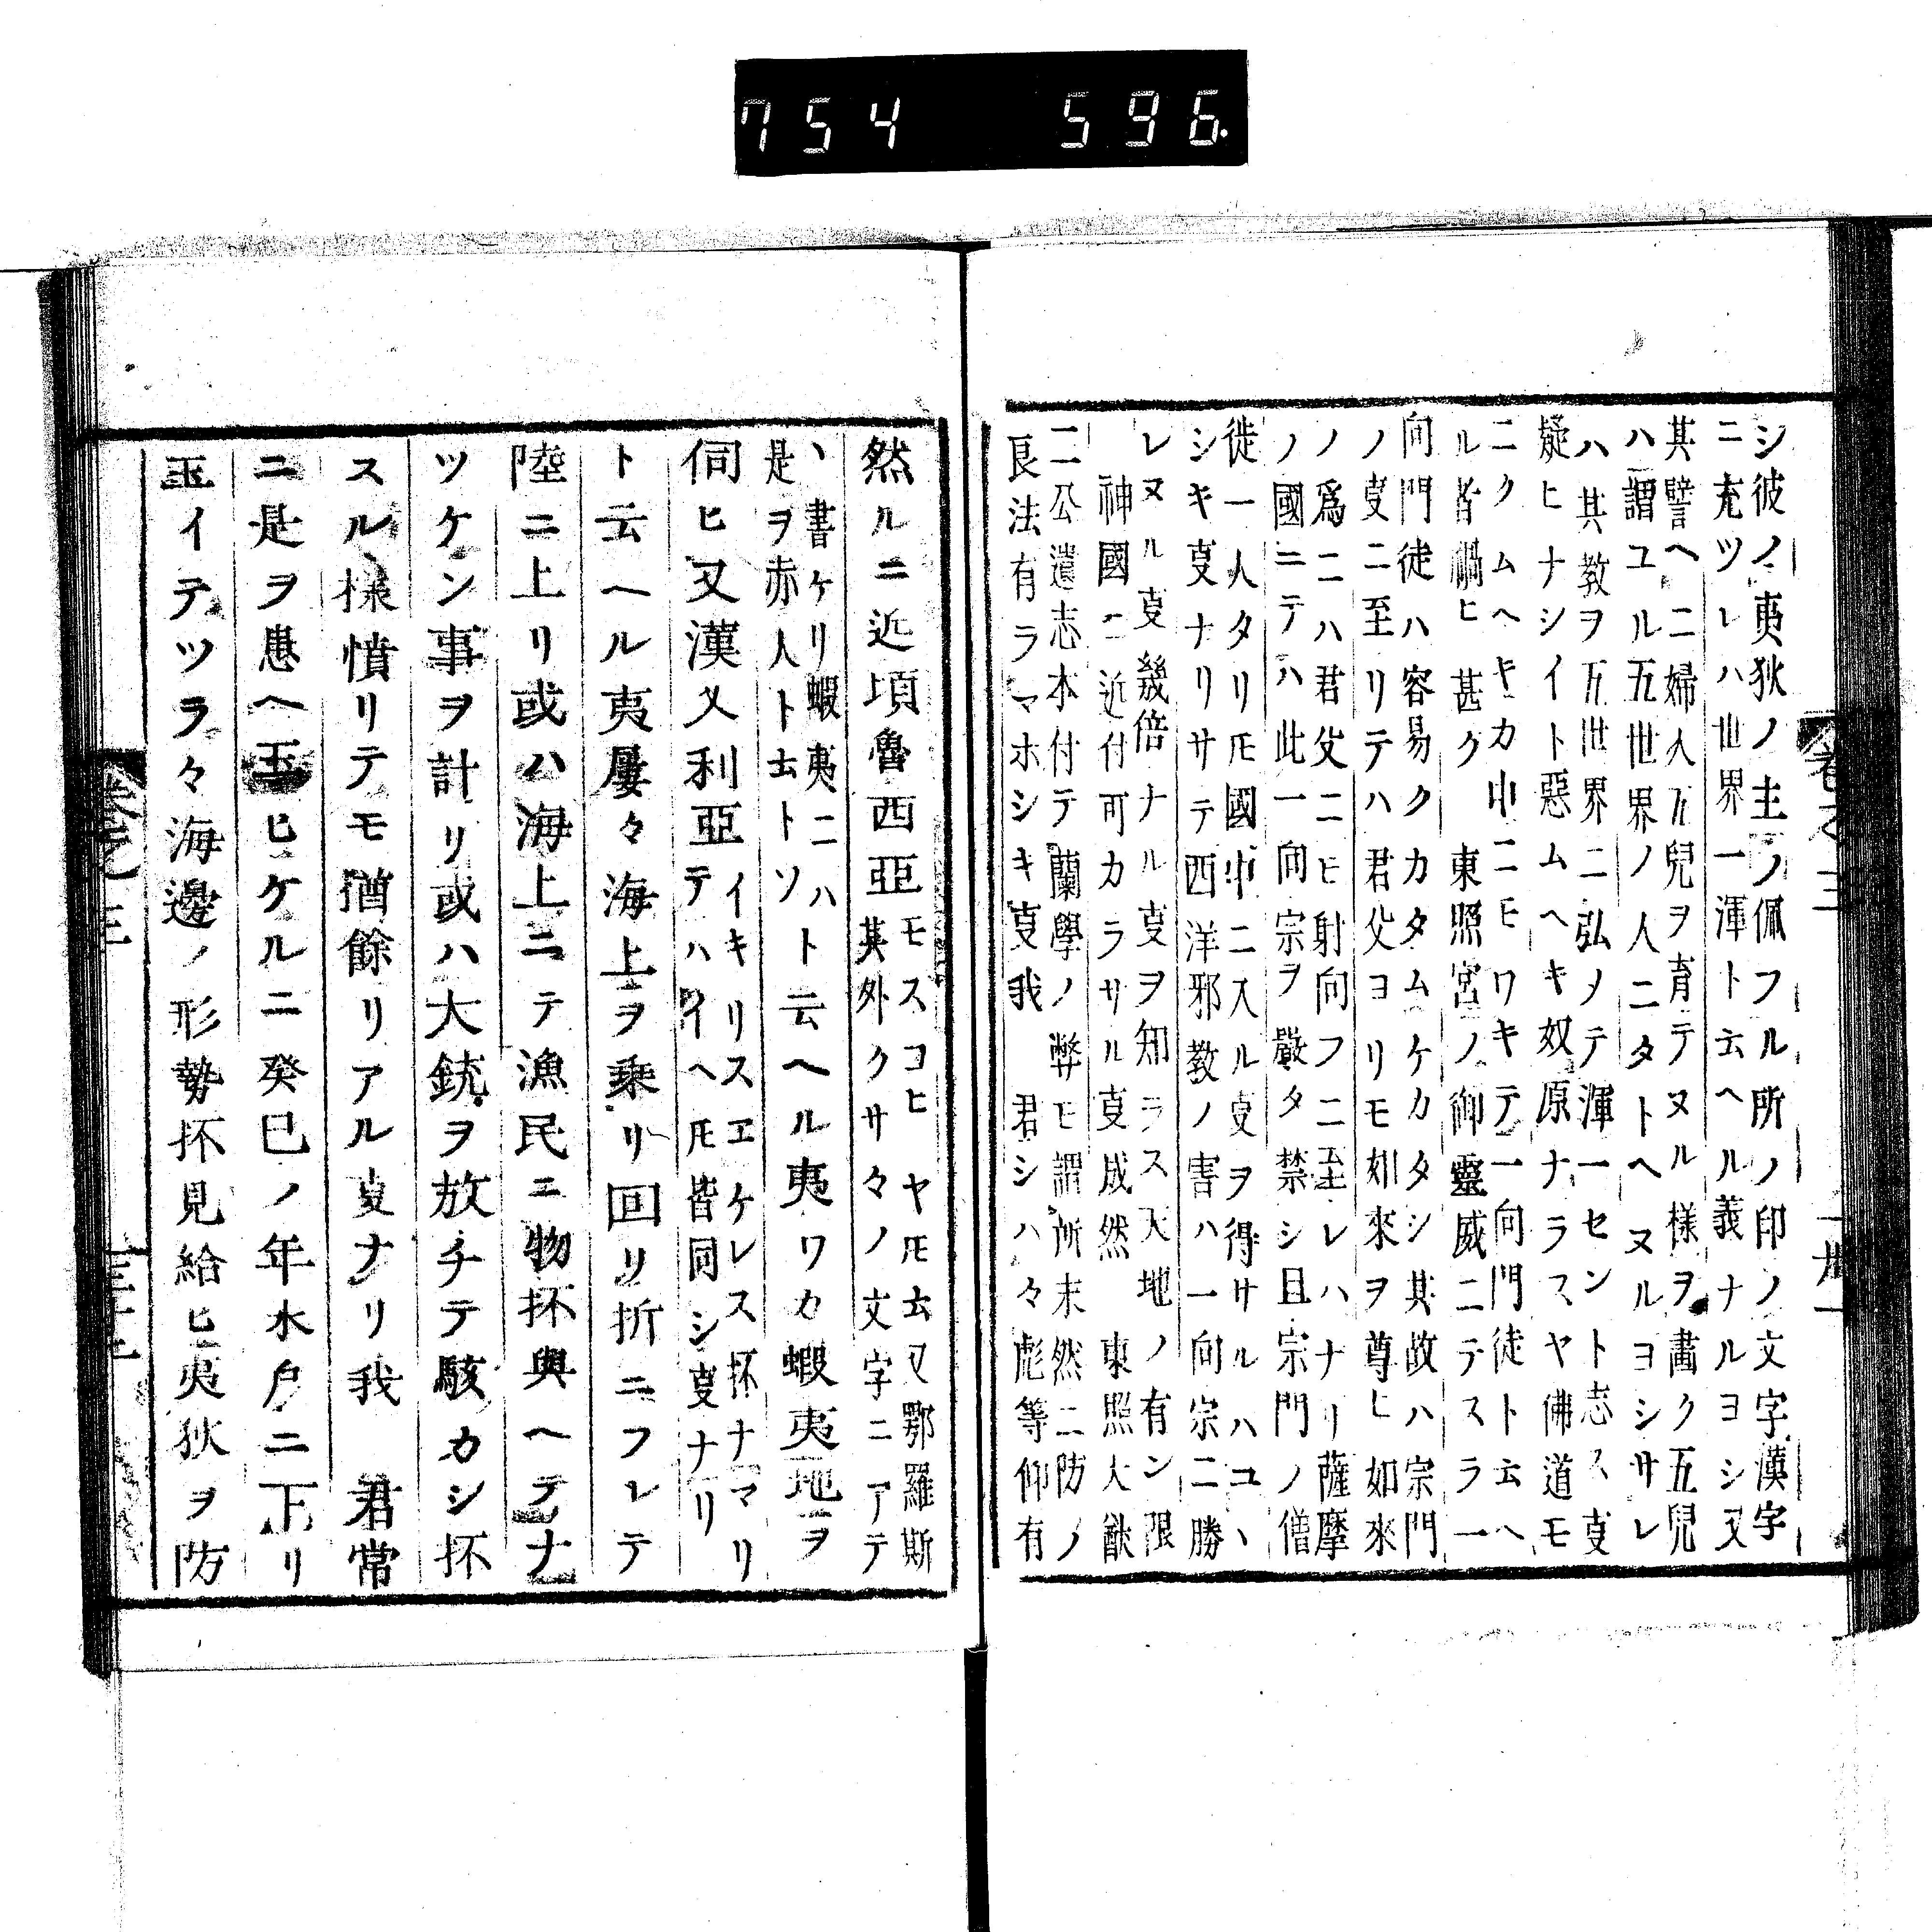 754 596.
シ彼ノ夷狄ノ主ノ佩フル所ノ印ノ文字漢字
ニ充ツレハ世界一渾ト云ヘル義ナルヨシ又
其譬ヘニ婦人五兒ヲ育テヌル様ヲ畵ク五兒
ハ謂ユル五世界ノ人ニタトヘヌルヨシサレ
ハ其教ヲ五世界ニ弘メテ渾一セント志ス叓
疑ヒナシイト惡ムヘキ奴原ナラスヤ佛道モ
ニクムヘキカ中ニモワキテ一向門徒ト云ヘ
ル者禍ヒ甚ク 東照宮ノ御靈威ニテスラ一
向門徒ハ容易クカタムケカタシ其故ハ宗門
ノ叓ニ至リテハ君父ヨリモ如來ヲ尊ヒ如來
ノ爲ニハ君父ニモ射向フニ至レハナリ薩摩
ノ國ニテハ此一向宗ヲ嚴ク禁シ且宗門ノ僧
徒一人タリ𪜈國中ニ入ル叓ヲ得サルハユヽ
シキ叓ナリサテ西洋邪教ノ害ハ一向宗ニ勝
レヌル叓幾倍ナル叓ヲ知ラス天地ノ有ン限
神國ニ近付可カラサル叓成然 東照大猷
二公遺志本付テ蘭學ノ弊モ謂所末然ニ防ノ
良法有ラマホシキ叓我 君シハ々彪等仰有
卷之三
三十一
然ルニ近頃魯西亞
モスコヒヤ𪜈云又鄂羅斯
其外クサ々ノ文字ニアテ
ヽ書ケリ蝦夷ニハ
是ヲ赤人ト云トソ
ト云ヘル夷ワカ蝦夷地ヲ
伺ヒ又漢乂利亞
イキリスエケレス抔ナマリ
テハイヘ𪜈皆同シ叓ナリ
ト云ヘル夷屢々海上ヲ乗リ回リ折ニフレテ
陸ニ上リ或ハ海上ニテ漁民ニ物抔與ヘテナ
ツケン事ヲ計リ或ハ大銃ヲ放チテ駭カシ抔
スル様憤リテモ猶餘リアル叓ナリ我 君常
ニ是ヲ患ヘ玉ヒケルニ癸巳ノ年水戶ニ下リ
玉イテツラ々海邊ノ形勢抔見給ヒ夷狄ヲ防
卷之三